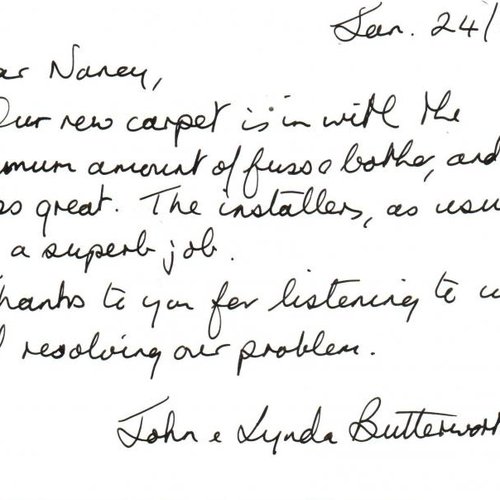 Jan. 24/
ar Nancy,
Our new carpet is in with the
imum amount of fuss & bother, and
so great. The installers, as usu
a superb job.
Thanks to you for listening to u
d resolving our problem.
John & Lynda Butterwort